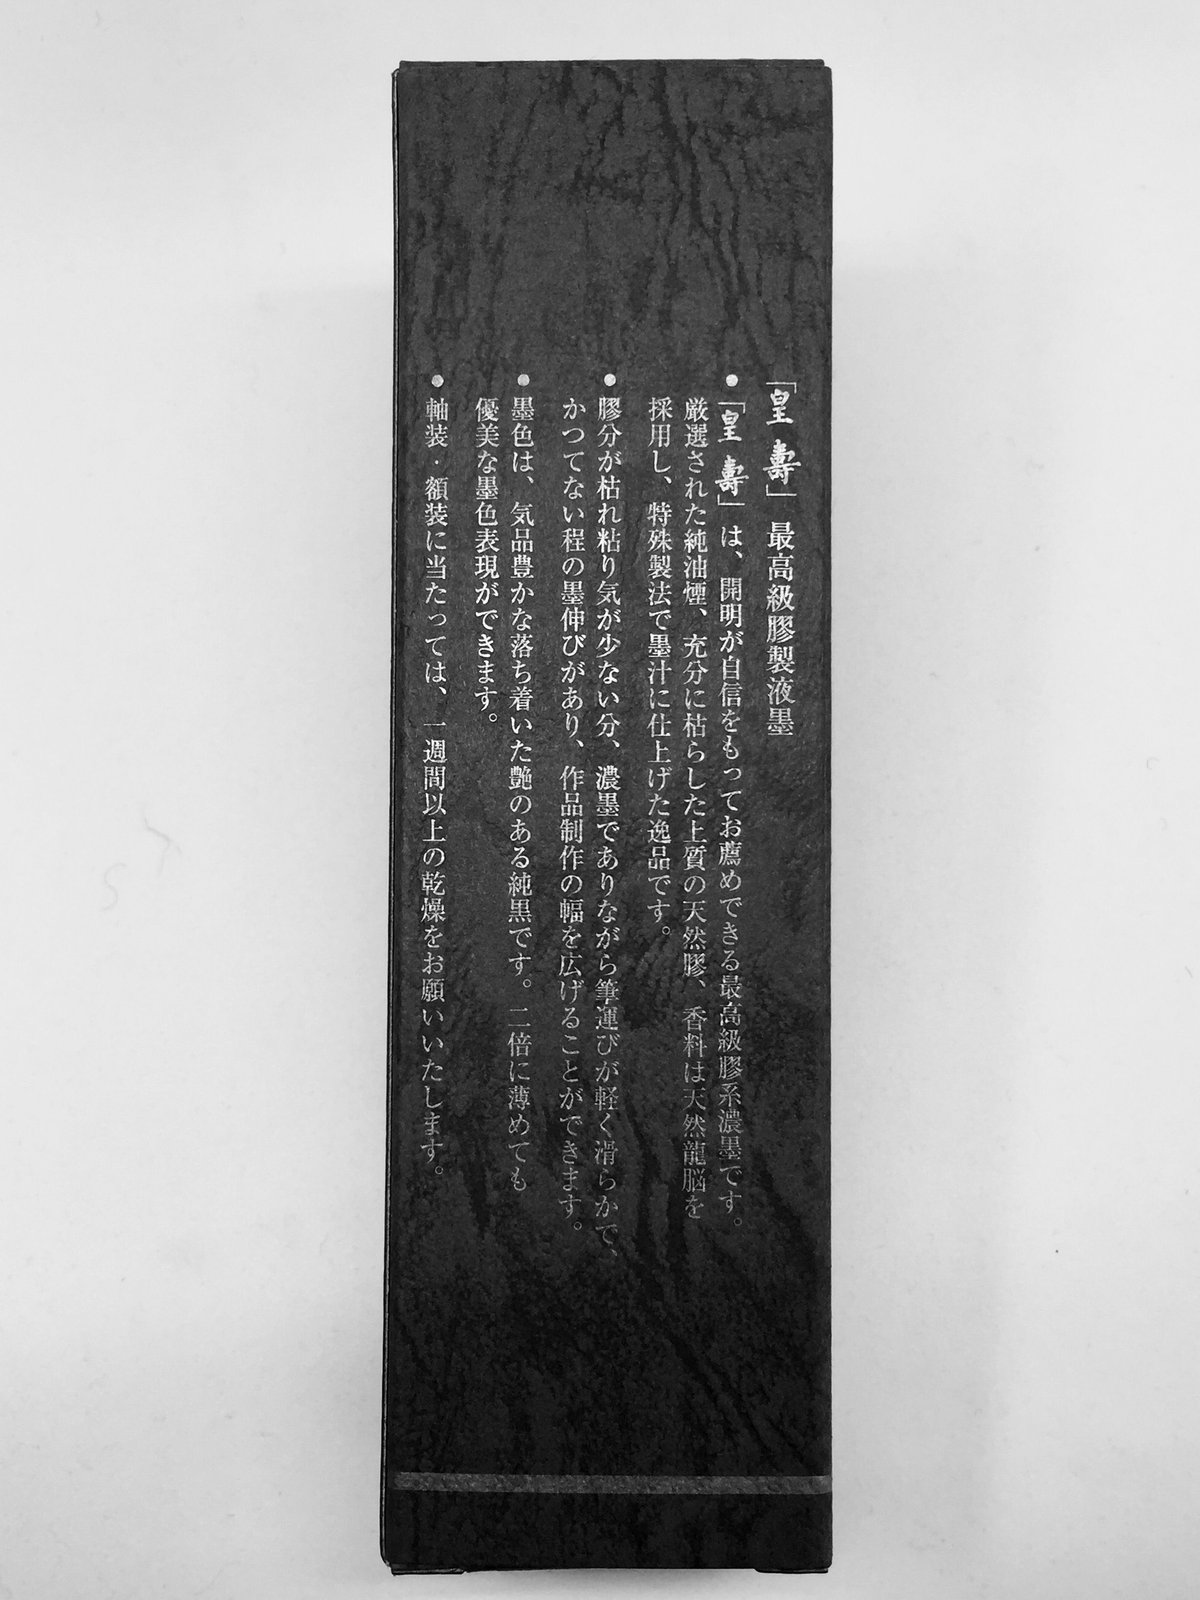 「皇壽」最高級膠製液墨
●「皇壽」は、開明が自信をもってお薦めできる最高級膠系濃墨です。
厳選された純油煙、充分に枯らした上質の天然膠、香料は天然龍脳を
採用し、特殊製法で墨汁に仕上げた逸品です。
●膠分が枯れ粘り気が少ない分、濃墨でありながら筆運びが軽く滑らかで、
かつてない程の墨伸びがあり、作品制作の幅を広げることができます。
●墨色は、気品豊かな落ち着いた艶のある純黒です。二倍に薄めても
優美な墨色表現ができます。
●軸装・額装に当たっては、一週間以上の乾燥をお願いいたします。